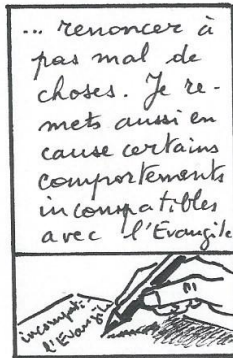 ... renoncer à
pas mal de
choses. Je re-
mets aussi en
cause certains
comportements
incompatibles
avec l'Evangile
incompati
l'Evangile